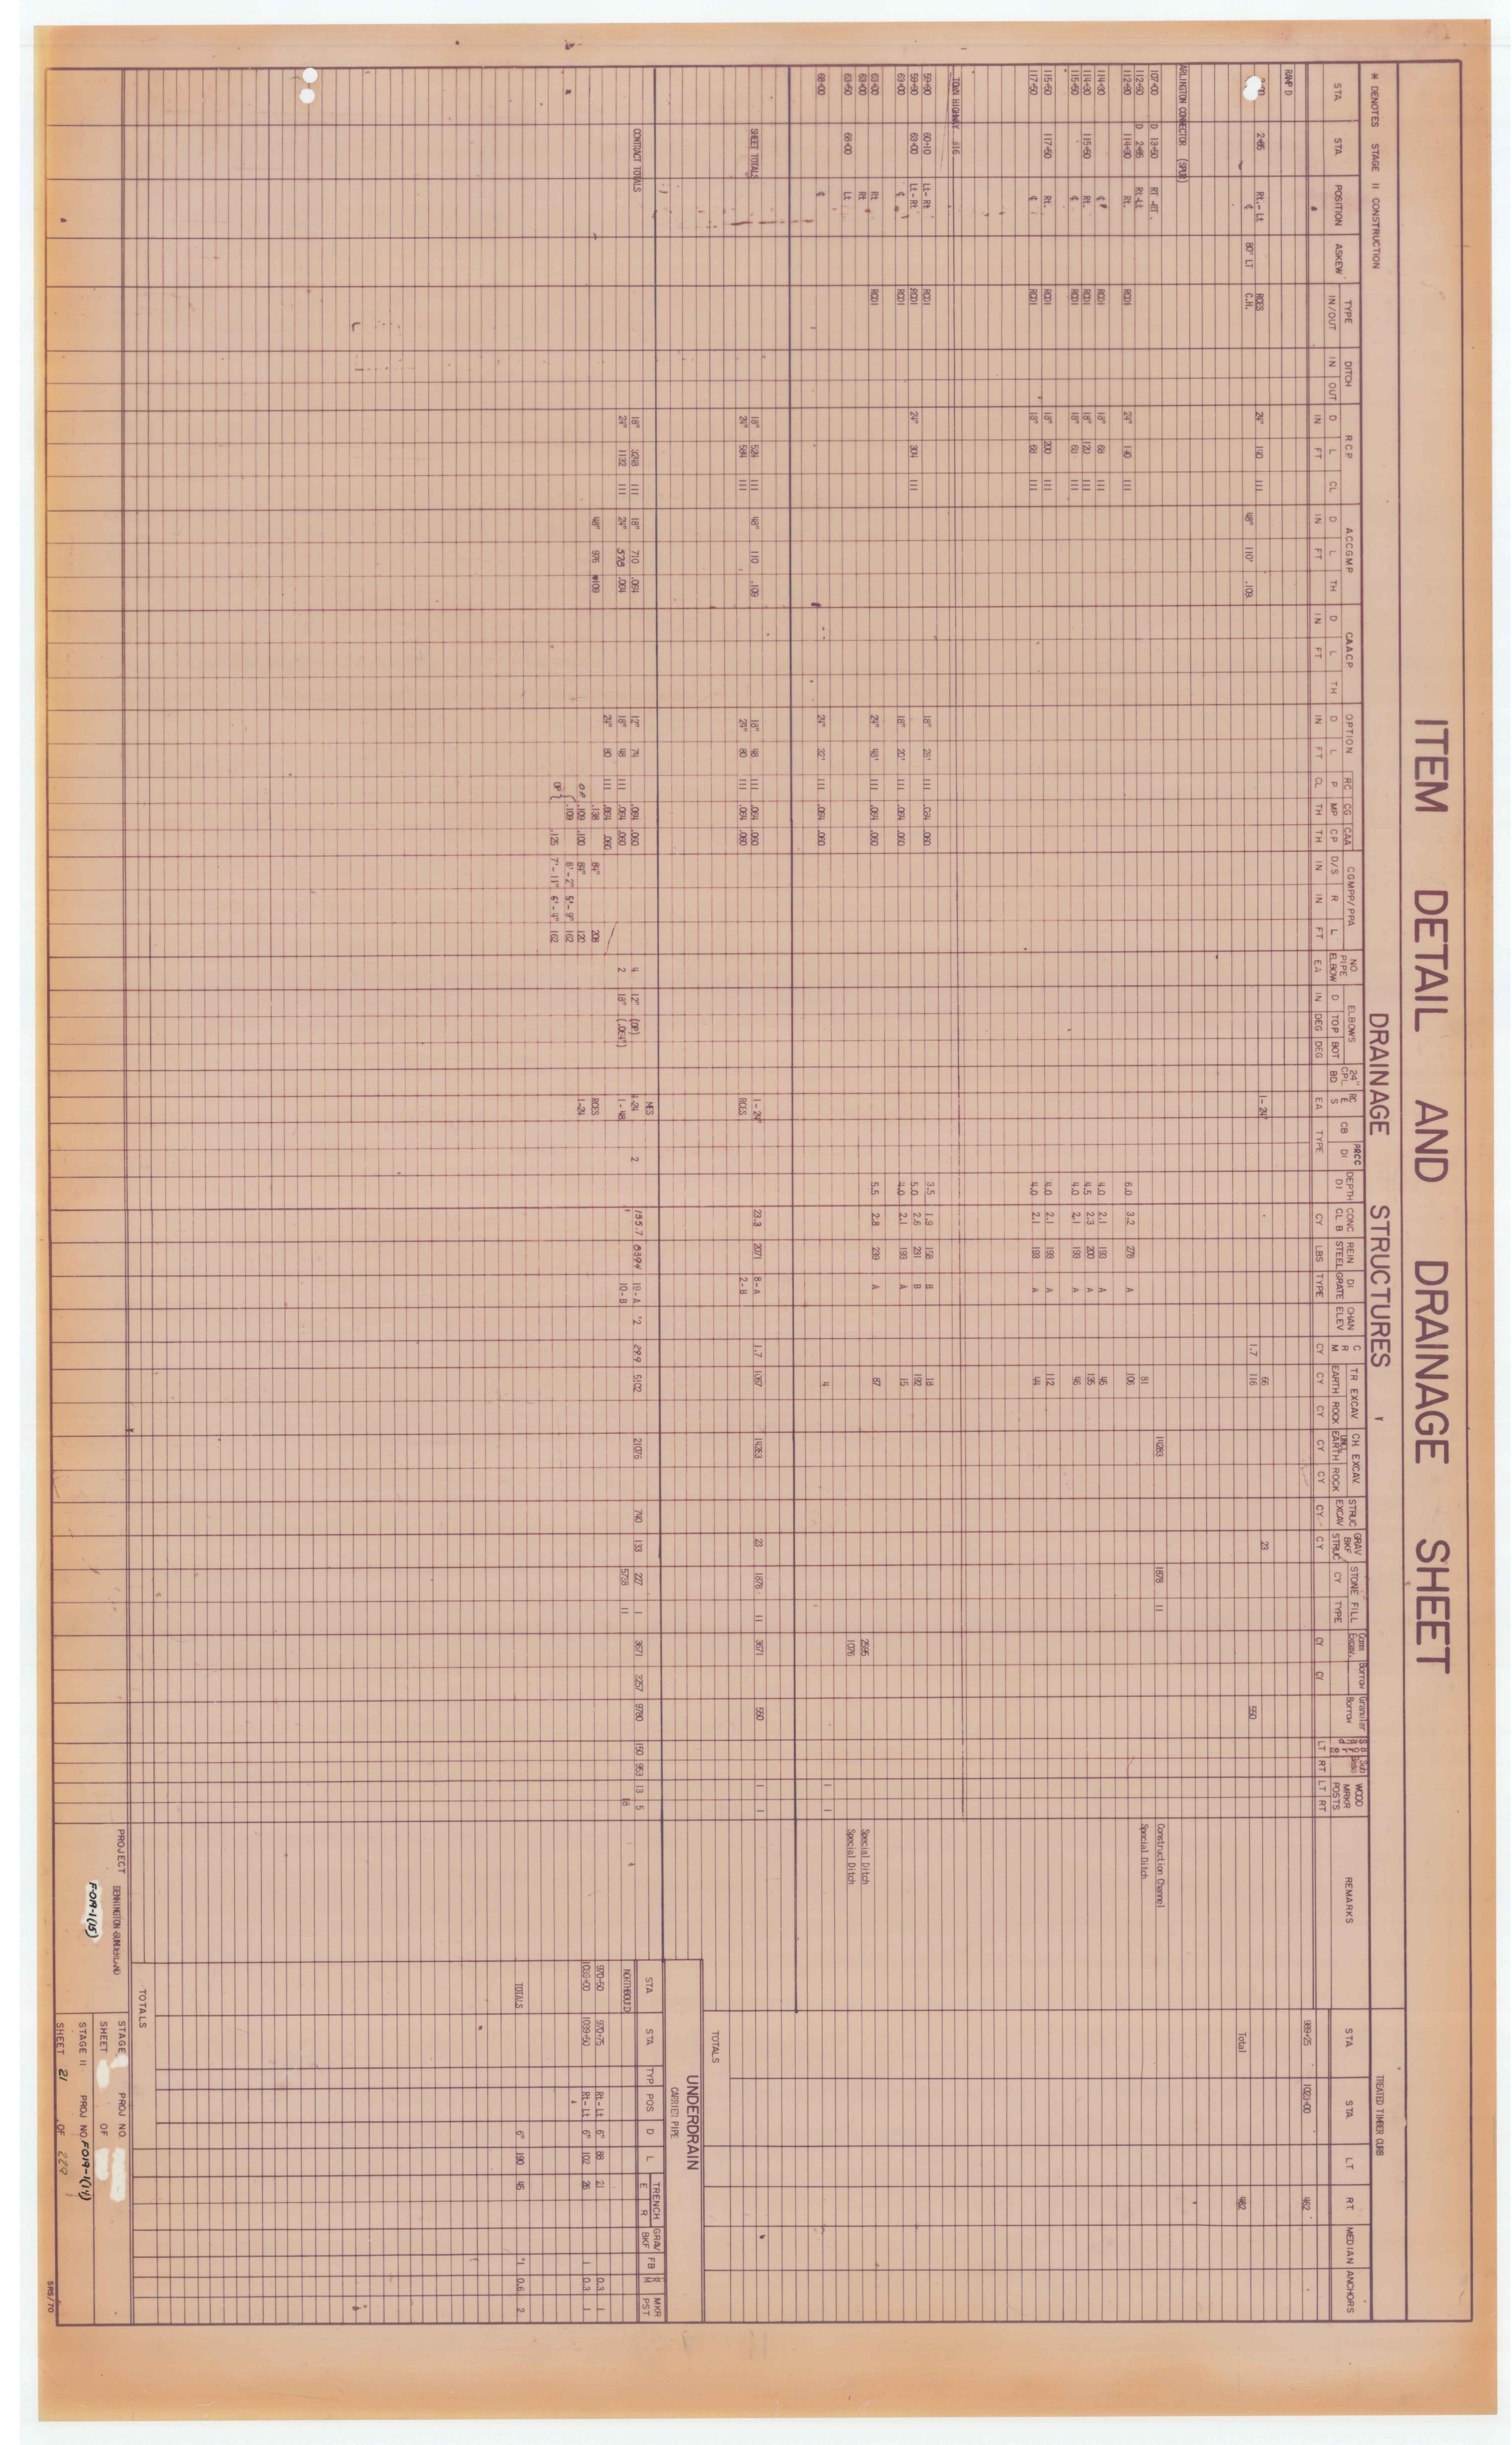 ITEM DETAIL AND DRAINAGE SHEET
DRAINAGE STRUCTURES
* DENOTES STAGE II CONSTRUCTION
TREATED TIMBER CURB
STA STA POSITION ASKEW TYPE IN/OUT DITCH IN OUT RCP D IN L FT CL ACCGMP D IN L FT TH CAACP D IN L FT TH OPTION D IN L FT RC P CL CG MP TH CAA CP TH CGMPP/PPA D/S IN R IN L FT NO PIPE ELBOW EA ELBOWS D IN TOP DEG BOT DEG 24" CPL BD RC E S EA CB PRCC DI TYPE DEPTH DI CONC CL B CY REIN STEEL LBS DI GRATE TYPE CHAN ELEV C R M CY TR EXCAV EARTH CY ROCK CY CH EXCAV UNCL EARTH CY ROCK CY STRUC EXCAV CY GRAV BKF STRUC CY STONE FILL CY TYPE Com Excav. CY Borrow CY Granular Borrow LT RT WOOD MRKR POSTS LT RT REMARKS
STA STA LT RT MEDIAN ANCHORS
RAMP D
989+25 1023+00 462
2+85 Rt.-Lt RCES 24" 140 III 1-24" 66 23
₵ 80° LT C.H. 48" 110' .109 1.7 116 550
Total 462
ARLINGTON CONNECTOR (SPUR)
107+00 D 13+50 RT-RT. 14283 1878 II Construction Channel
112+50 D 2+85 Rt-Lt 81 Special Ditch
112+80 114+30 Rt. RCDI 24" 140 III 6.0 3.2 278 A 106
114+30 ₵ RCDI 18" 68 III 4.0 2.1 193 A 45
114+30 115+50 Rt. RCDI 18" 120 III 4.5 2.3 200 A 135
115+50 ₵ RCDI 18" 68 III 4.0 2.1 193 A 46
115+50 117+50 Rt. RCDI 18" 200 III 4.0 2.1 193 A 112
117+50 ₵ RCDI 18" 68 III 4.0 2.1 193 A 44
TOWN HIGHWAY #16
59+80 60+10 Lt-Rt RCDI 18" 28' III .064 .060 3.5 1.9 158 B 18
59+80 63+00 Lt-Rt RCDI 24" 304 III 5.0 2.6 231 B 192
63+00 ₵ RCDI 18" 20' III .064 .060 4.0 2.1 193 A 15
63+00 Rt RCDI 24" 48' III .064 .060 5.5 2.8 239 A 87
63+00 Rt 2595 Special Ditch
63+50 68+00 Lt 1076 Special Ditch
68+00 ₵ 24" 32' III .064 .060 4 1 1
SHEET TOTALS 18" 524 III 48" 110 .109 18" 48 III .064 .060 1-24" 23.3 2071 8-A 1.7 1067 14283 23 1878 II 3671 550 1 1
24" 584 III 24" 80 III .064 .060 RCES 2-B
TOTALS
CONTRACT TOTALS 18" 3248 III 18" 710 .064 12" 74 .064 .060 4 12" (OP) MES 4-24 2 135.7 8394 19-A *2 29.9 5102 21076 740 133 227 I 3671 3257 9780 150 953 13 5
24" 1132 III 24" 578 .064 18" 48 III .064 .060 2 18" (.064") 1-48 10-B 5758 II 18
24" 80 III .064 .060
48" 976 .109 .138 84" 208 RCES
OP .109 .100 84" 120 1-24
OP .109 6'-2" 5'-9" 162
.125 7'-11" 6'-4" 162
UNDERDRAIN
CARRIER PIPE
STA STA TYP POS D L TRENCH E R GRAV BKF FB R M MKR PST
NORTHBOUND
970+50 970+75 Rt-Lt 6" 88 21 0.3 1
1039+00 1039+50 Rt-Lt 6" 102 26 1 0.3 1
TOTALS 6" 190 46 *1 0.6 2
TOTALS
PROJECT BENNINGTON-SUNDERLAND
F-019-1(15)
STAGE PROJ NO.
SHEET OF
STAGE II PROJ NO F 019-1(14)
SHEET 21 OF 229
SRS/70